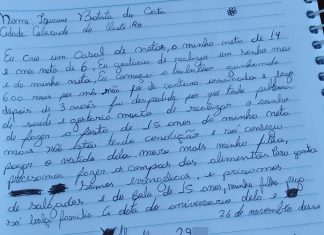 Nome: Batista da Costa
Cidade: Colorado do Oeste-RO
Eu crio um casal de netos, a minha neta de 14
e meu neto de 6. Eu gostaria de realizar um sonho meu
e da minha neta, Ela começou a trabalhar ganhando
600 reais por mês não foi de carteira assinada e logo
depois de 3 meses foi despedida por que tinha problema
de saúde e gostaria muito de realizar o sonho
de fazer a festa de 15 anos da minha neta
mais não estou tendo condição e só consegui
pagar o vestido dela moro mais minha filha,
precisamos fazer as compras dos alimentos para janta
somos evangélicos, e precisamos
de salgados e do bolo de 15 anos, minha filha
só bolsa família. A data do aniversário dela é
26 de novembro desse
29